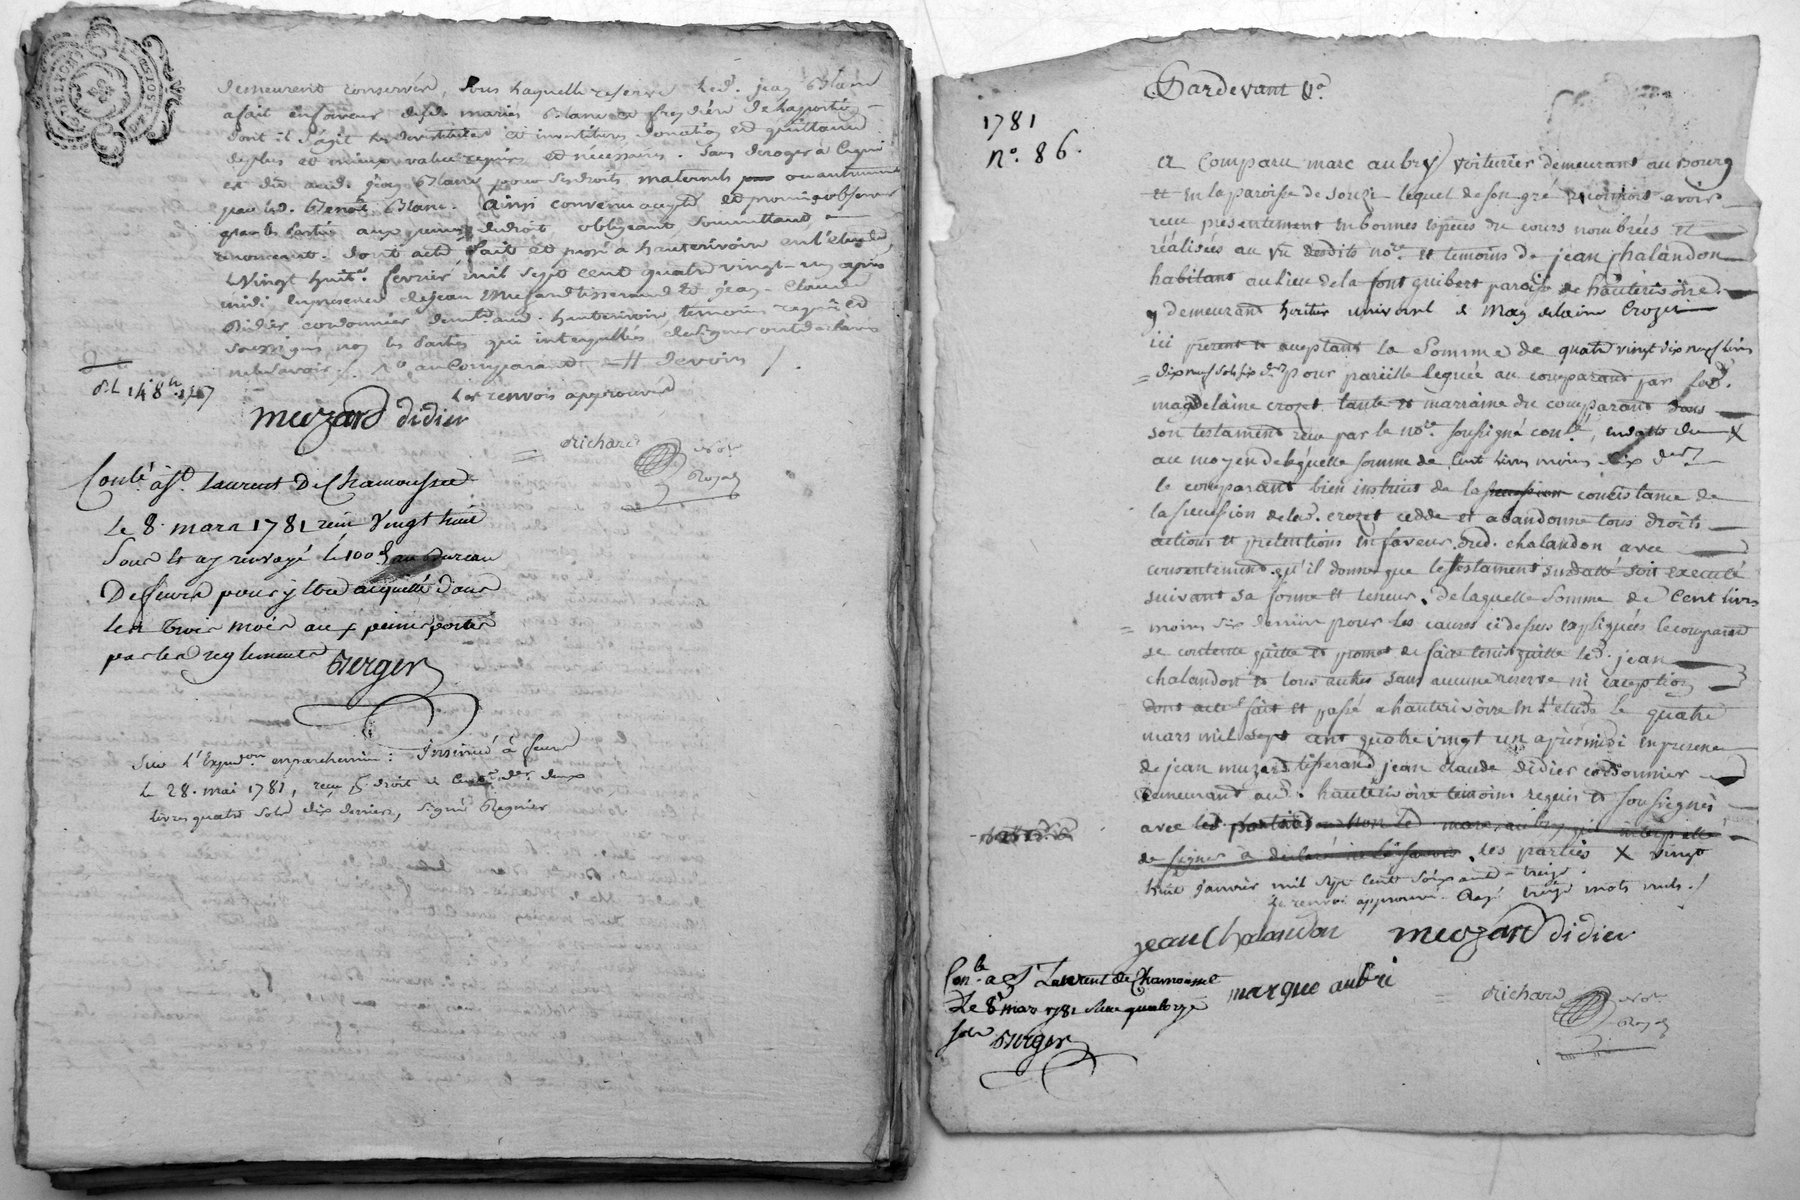 demeurent conservés, sous laquelle reserve led. jean Blanc
a fait en faveur desd. mariés Blanc et freydière de la portion
dont il s'agit les devestitures et investitures donation et quittance
de plus et mieux value requis et nécessaires. Sans deroger à ce qui
est dû aud. jean Blanc pour ses droits maternels ou autrement
par led. Benoit Blanc. Ainsi convenu accepté et promis observer
par les Parties aux peines de droit, obligeant, soumettant,
renonçant. dont acte, fait et passé à hauterivoire en l'étude le
Vingt huit février mil sept cent quatre vingt-un après
midi en presence de jean Muzard tisserand et jean-Claude
Didier cordonnier demt. aud. hauterivoire, temoins requis et
soussignés, non les Parties qui interpellées de signer ont déclaré
ne le savoir ./. au Comparant
Les renvois approuvés
muzard didier
Richard
Not.
Royal
Conlé à St. Laurent De Chamousset
Le 8. mars 1781 reçu Vingt huit
Sous et ay renvoyé le 100e au Bureau
De feurs pour y être acquitté dans
les trois mois aux peines portées
par les reglements Berger
Sur l'Expedon. en parchemin: Insinué à feurs
Le 28. mai 1781, reçu
livres quatre sols dix deniers, Signé Regnier
Pardevant
1781
No. 86.
a Comparu marc aubry voiturier demeurant au Bourg
et en la paroisse de Souzi lequel de son gré reconnoit avoir
reçu présentement en bonnes espèces du cours nombrées et
réalisées au vu desdits nore. et temoins de jean chalandon
habitant au lieu de la font guibert paroisse de hauterivoire
y demeurant heritier universel de Magdelaine Crozet
ici present et aceptant la Somme de quatre vingt dix neuf livres
dix neuf sols six drs. pour pareille leguée au comparant par lad.
magdelaine crozet tante et marraine du comparant dans
son testament reçu par le nore. soussigné conlé, en datte du X
au moyen de laquelle somme de cent livres moins six drs.
le comparant bien instruit de la succession concistance de
la succession de lad. crozet cedde et abandonne tous droits
actions et prétentions en faveur dud. chalandon avec
consentement qu'il donne que le testament susdatté soit executé
suivant sa forme et teneur, de laquelle somme de Cent livres
moins six deniers pour les causes ci dessus expliquées le comparant
se contente quitte et promet de faire tenir quitte led. jean
chalandon et tous autres sans aucune reserve ni exception
dont acte fait et passé a hauterivoire en l'etude le quatre
mars mil sept cent quatre vingt un après midi en presence
de jean muzard tisserand jean claude didier cordonnier
demeurant aud. hauterivoire temoins requis et soussignés
avec les parties non led. marc aubry qui interpellé
de signer à declaré ne le savoir. les parties X vingt
huit janvier mil sept cent soixante-treize.
Le renvoi approuvé. Rayé treize mots nuls./
jean Chalandon muzard didier
marque aubri
Conlé a St Laurent de Chamousset
Le 8 mars 1781 reçu quatorze
sols Berger
Richard
Not.
Royal